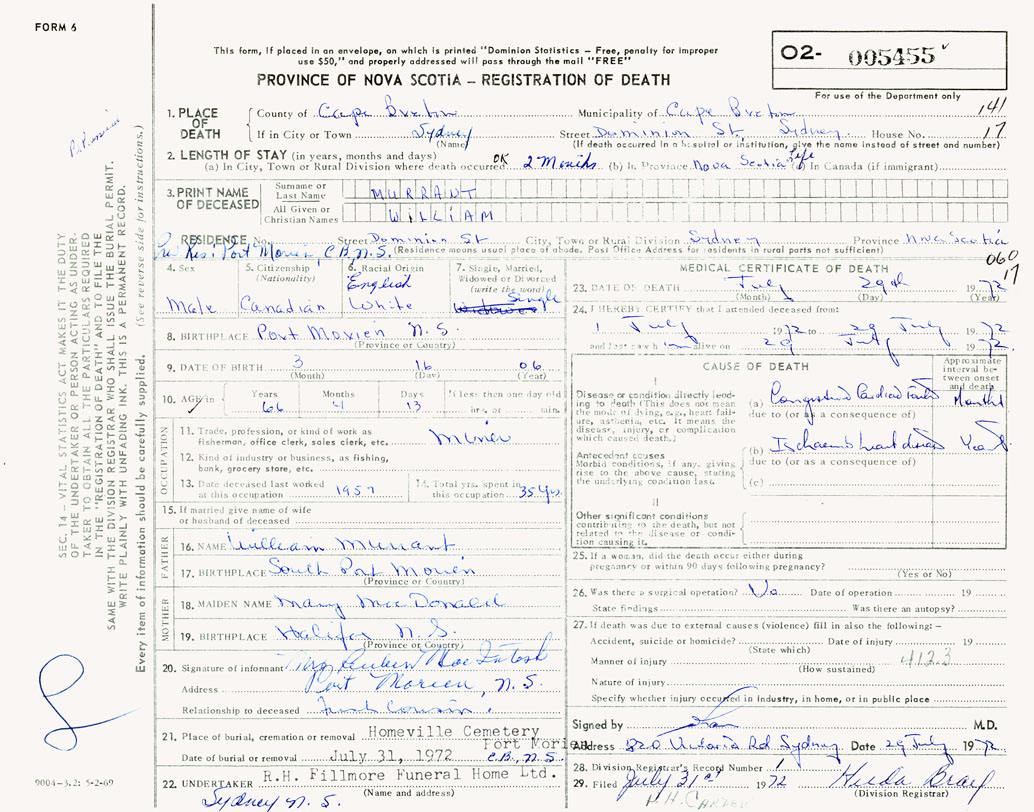 FORM 6
This form, if placed in an envelope, on which is printed "Dominion Statistics – Free, penalty for improper
use $50," and properly addressed will pass through the mail "FREE"
PROVINCE OF NOVA SCOTIA – REGISTRATION OF DEATH
02- 005455
For use of the Department only
141
17
1. PLACE OF DEATH
County of Cape Breton Municipality of Cape Breton
If in City or Town Sydney Street Dominion St, Sydney House No.
(Name) (If death occurred in a hospital or institution, give the name instead of street and number)
2. LENGTH OF STAY (in years, months and days)
(a) In City, Town or Rural Division where death occurred OK 2 Months (b) In Province Nova Scotia Life (c) In Canada (if immigrant)
3. PRINT NAME OF DECEASED
Surname or Last Name MURRANT
All Given or Christian Names WILLIAM
RESIDENCE No. Street Dominion St City, Town or Rural Division Sydney Province Nova Scotia
Res: Port Morien, C.B., N.S. (Residence means usual place of abode. Post Office Address for residents in rural parts not sufficient)
060
17
4. Sex Male
5. Citizenship (Nationality) Canadian
6. Racial Origin English White
7. Single, Married, Widowed or Divorced (write the word) Single
8. BIRTHPLACE Port Morien N.S.
(Province or Country)
9. DATE OF BIRTH 3 16 06
(Month) (Day) (Year)
10. AGE in Years 66 Months 4 Days 13 If less than one day old
hrs. or min.
OCCUPATION
11. Trade, profession, or kind of work as fisherman, office clerk, sales clerk, etc. Miner
12. Kind of industry or business, as fishing, bank, grocery store, etc.
13. Date deceased last worked at this occupation 1957
14. Total yrs. spent in this occupation 35 yrs.
15. If married give name of wife or husband of deceased
FATHER
16. NAME William Murrant
17. BIRTHPLACE South Port Morien
(Province or Country)
MOTHER
18. MAIDEN NAME Mary MacDonald
19. BIRTHPLACE Halifax N.S.
(Province or Country)
20. Signature of informant Mrs Reuben MacIntosh
Address Port Morien, N.S.
Relationship to deceased First Cousin.
21. Place of burial, cremation or removal Homeville Cemetery
Port Morien
Date of burial or removal July 31, 1972 C.B., N.S.
22. UNDERTAKER R.H. Fillmore Funeral Home Ltd.
(Name and address)
Sydney N.S.
MEDICAL CERTIFICATE OF DEATH
23. DATE OF DEATH July 29th 1972
(Month) (Day) (Year)
24. I HEREBY CERTIFY that I attended deceased from:
1 July 1972 to 29 July 1972
and last saw him alive on 29 July 1972.
CAUSE OF DEATH
Approximate interval between onset and death
I
Disease or condition directly leading to death (This does not mean the mode of dying, e.g., heart failure, asthenia, etc. It means the disease, injury, or complication which caused death.)
(a) Congestive Cardiac Months
due to (or as a consequence of)
(b) Ischaemic heart disease Years
due to (or as a consequence of)
Antecedent causes
Morbid conditions, if any, giving rise to the above cause, stating the underlying condition last.
(c)
II
Other significant conditions contributing to the death, but not related to the disease or condition causing it.
25. If a woman, did the death occur either during
pregnancy or within 90 days following pregnancy?
(Yes or No)
26. Was there a surgical operation? No Date of operation 19
State findings Was there an autopsy?
27. If death was due to external causes (violence) fill in also the following: –
Accident, suicide or homicide? Date of injury 19
(State which)
Manner of injury 412.3
(How sustained)
Nature of injury
Specify whether injury occurred in industry, in home, or in public place
Signed by M.D.
Address 320 Victoria Rd Sydney Date 29 July 1972
28. Division Registrar's Record Number 1
29. Filed July 31st 1972 Hilda Bray
(Division Registrar)
H.H. CARTER
SEC. 14 – VITAL STATISTICS ACT MAKES IT THE DUTY
OF THE UNDERTAKER OR PERSON ACTING AS UNDER-
TAKER TO OBTAIN ALL THE PARTICULARS REQUIRED
IN THE "REGISTRATION OF DEATH" AND TO FILE THE
SAME WITH THE DIVISION REGISTRAR WHO SHALL ISSUE THE BURIAL PERMIT.
WRITE PLAINLY WITH UNFADING INK. THIS IS A PERMANENT RECORD.
Every item of information should be carefully supplied. (See reverse side for instructions.)
9004-3.2: 5-2-69